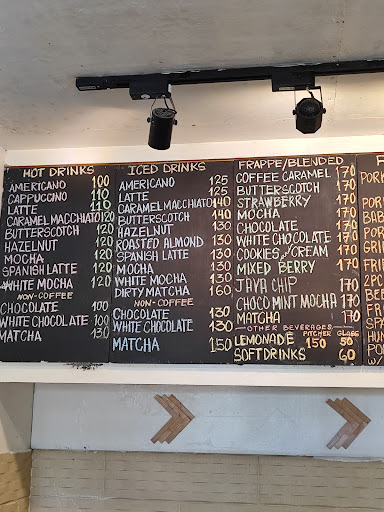 HOT DRINKS
AMERICANO 100
CAPPUCCINO 110
LATTE 110
CARAMEL MACCHIATO 120
BUTTERSCOTCH 120
HAZELNUT 120
MOCHA 120
SPANISH LATTE 120
WHITE MOCHA 120
NON-COFFEE
CHOCOLATE 100
WHITE CHOCOLATE 100
MATCHA 130
ICED DRINKS
AMERICANO 125
LATTE 125
CARAMEL MACCHIATO 140
BUTTERSCOTCH 140
HAZELNUT 130
ROASTED ALMOND 130
SPANISH LATTE 130
MOCHA 130
WHITE MOCHA 130
DIRTY MATCHA 160
NON-COFFEE
CHOCOLATE 130
WHITE CHOCOLATE 130
MATCHA 150
FRAPPE/BLENDED
COFFEE CARAMEL 170
BUTTERSCOTCH 170
STRAWBERRY 170
MOCHA 170
CHOCOLATE 170
WHITE CHOCOLATE 170
COOKIES AND CREAM 170
MIXED BERRY 170
JAVA CHIP 170
CHOCO MINT MOCHA 170
MATCHA 170
OTHER BEVERAGES PITCHER GLASS
LEMONADE 150 50
SOFTDRINKS 60